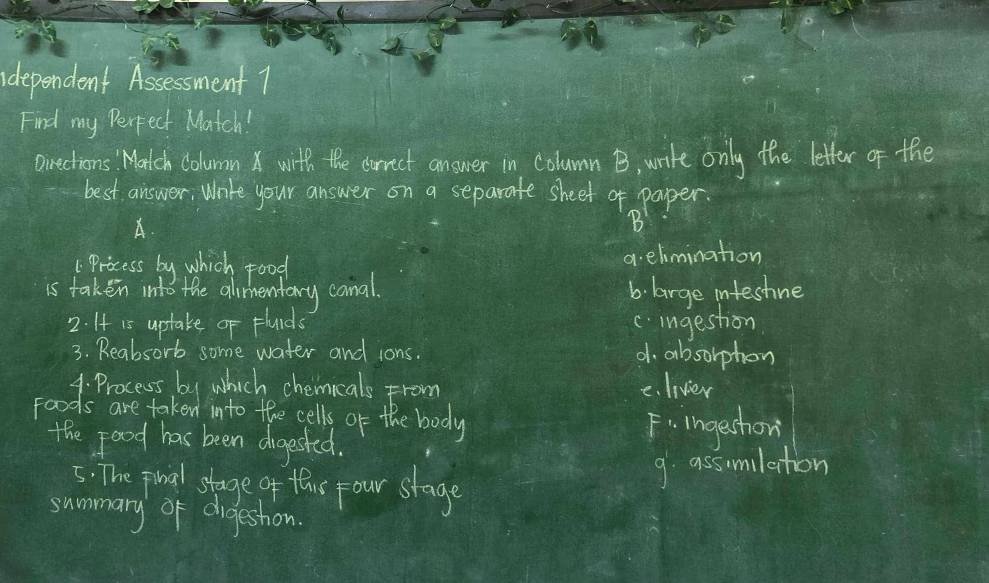 ndependent Assessment 1
Find my Perfect Match!
Directions: Match Column A with the currect answer in Column B, write only the letter of the
best answer. Write your answer on a separate sheet of paper.
A.
1. Process by which food
is taken into the alimentary canal.
2. It is uptake of fluids
3. Reabsorb some water and ions.
4. Process by which chemicals from
foods are taken into the cells of the body
the food has been digested.
5. The final stage of this four stage
summary of digestion.
B.
a. elimination
b. large intestine
c. ingestion
d. absorption
e. livier
F. ingestion
g. assimilation